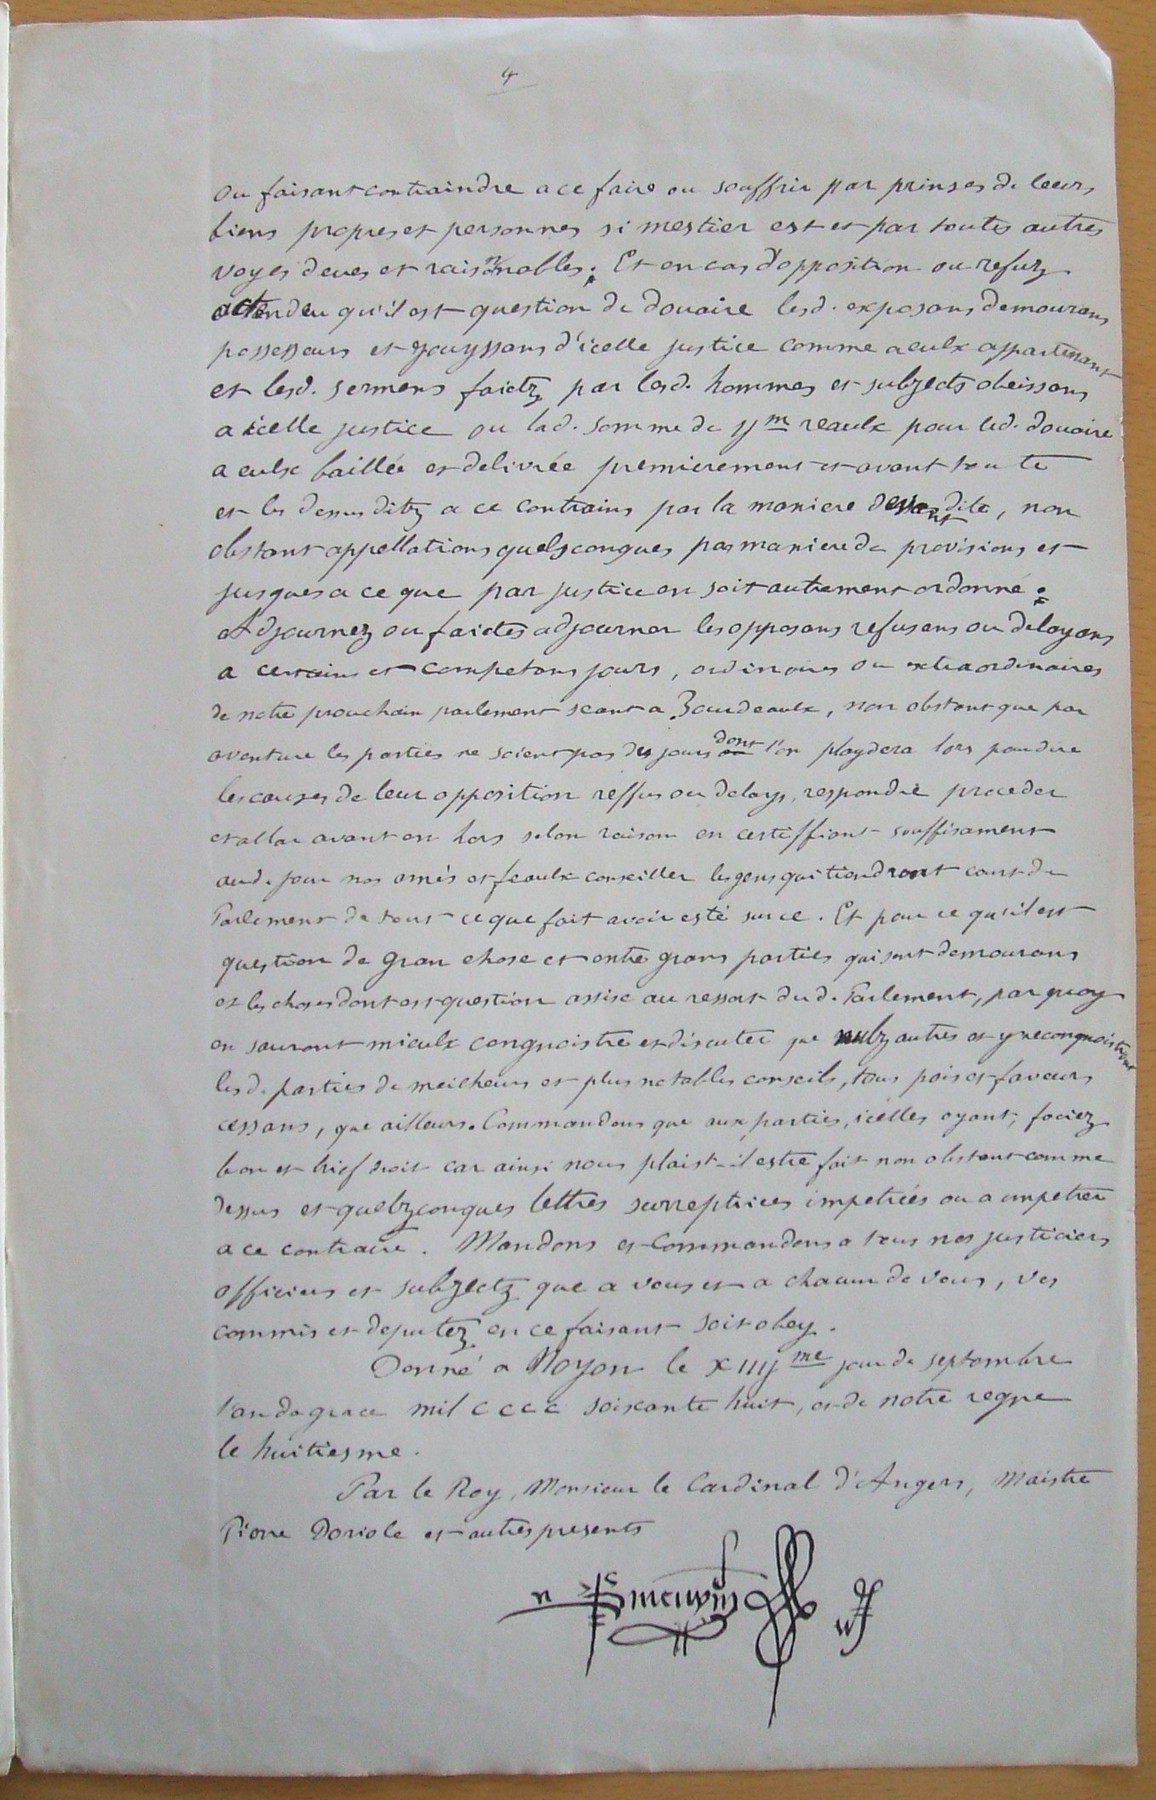 4
ou faisant contraindre a ce faire ou souffrir par prinses de leurs
biens propres et personnes si mestier est et par toutes autres
voyes deues et raisonnables ; Et en cas d'opposition ou refuz
actendeu qu'il est question de douaire lesd. exposans demourans
possesseurs et jouyssans d'icelle justice comme a eulx appartenant
et lesd. sermens faictz par lesd. hommes et subjects obeissans
a icelle justice ou lad. somme de ijm reaulx pour led. douaire
a eulx baillée et delivrée premierement et avant toute
et les dessus ditz a ce contrains par la maniere devant dite, non
obstant appellations quelsconques par maniere de provisions et
jusques a ce que par justice en soit autrement ordonné ;
Adjournez ou faictes adjourner les opposans refusans ou deloyans
a certains et competans jours, ordinaires ou extraordinaires
de notre prouchain parlement seant a Bourdeaulx, non obstant que par
aventure les parties ne soient pas des jours dont l'on playdera lors pour dire
les causes de leur opposition reffus ou delays, respondre proceder
et aller avant en hors selon raison en certiffiant souffisament
aud. jour nos amés et feaulx conseiller les gens qui tiendront court de
Parlement de tout ce que fait avoir esté sur ce. Et pour ce qu'il est
question de gran chose et entre grans parties qui sont demourans
et les choses dont est question assise au ressort dud. Parlement, par quoy
en sauront mieulx congnoistre et discuter que nulz autres et y recongnoistront
lesd. parties de meilheurs et plus notables conseils, tous pois et faveurs
cessans, que ailleurs. Commandons que aux parties, icelles oyant, faciez
bon et brief droit car ainsi nous plaist-il estre fait non obstant comme
dessus et quelzconques lettres surreptices impetrées ou a impetrer
a ce contraire. Mandons et Commandons a tous nos justiciers
officiers et subjectz que a vous et a chacun de vous, vos
commis et deputez en ce faisant soit obey.
Donné a Noyon le xiiijme jour de septembre
l'an de grace mil cccc soixante huit, et de notre regne
le huitiesme.
Par le Roy, Monsieur le Cardinal d'Angers, Maistre
Pierre Doriole et autres presents